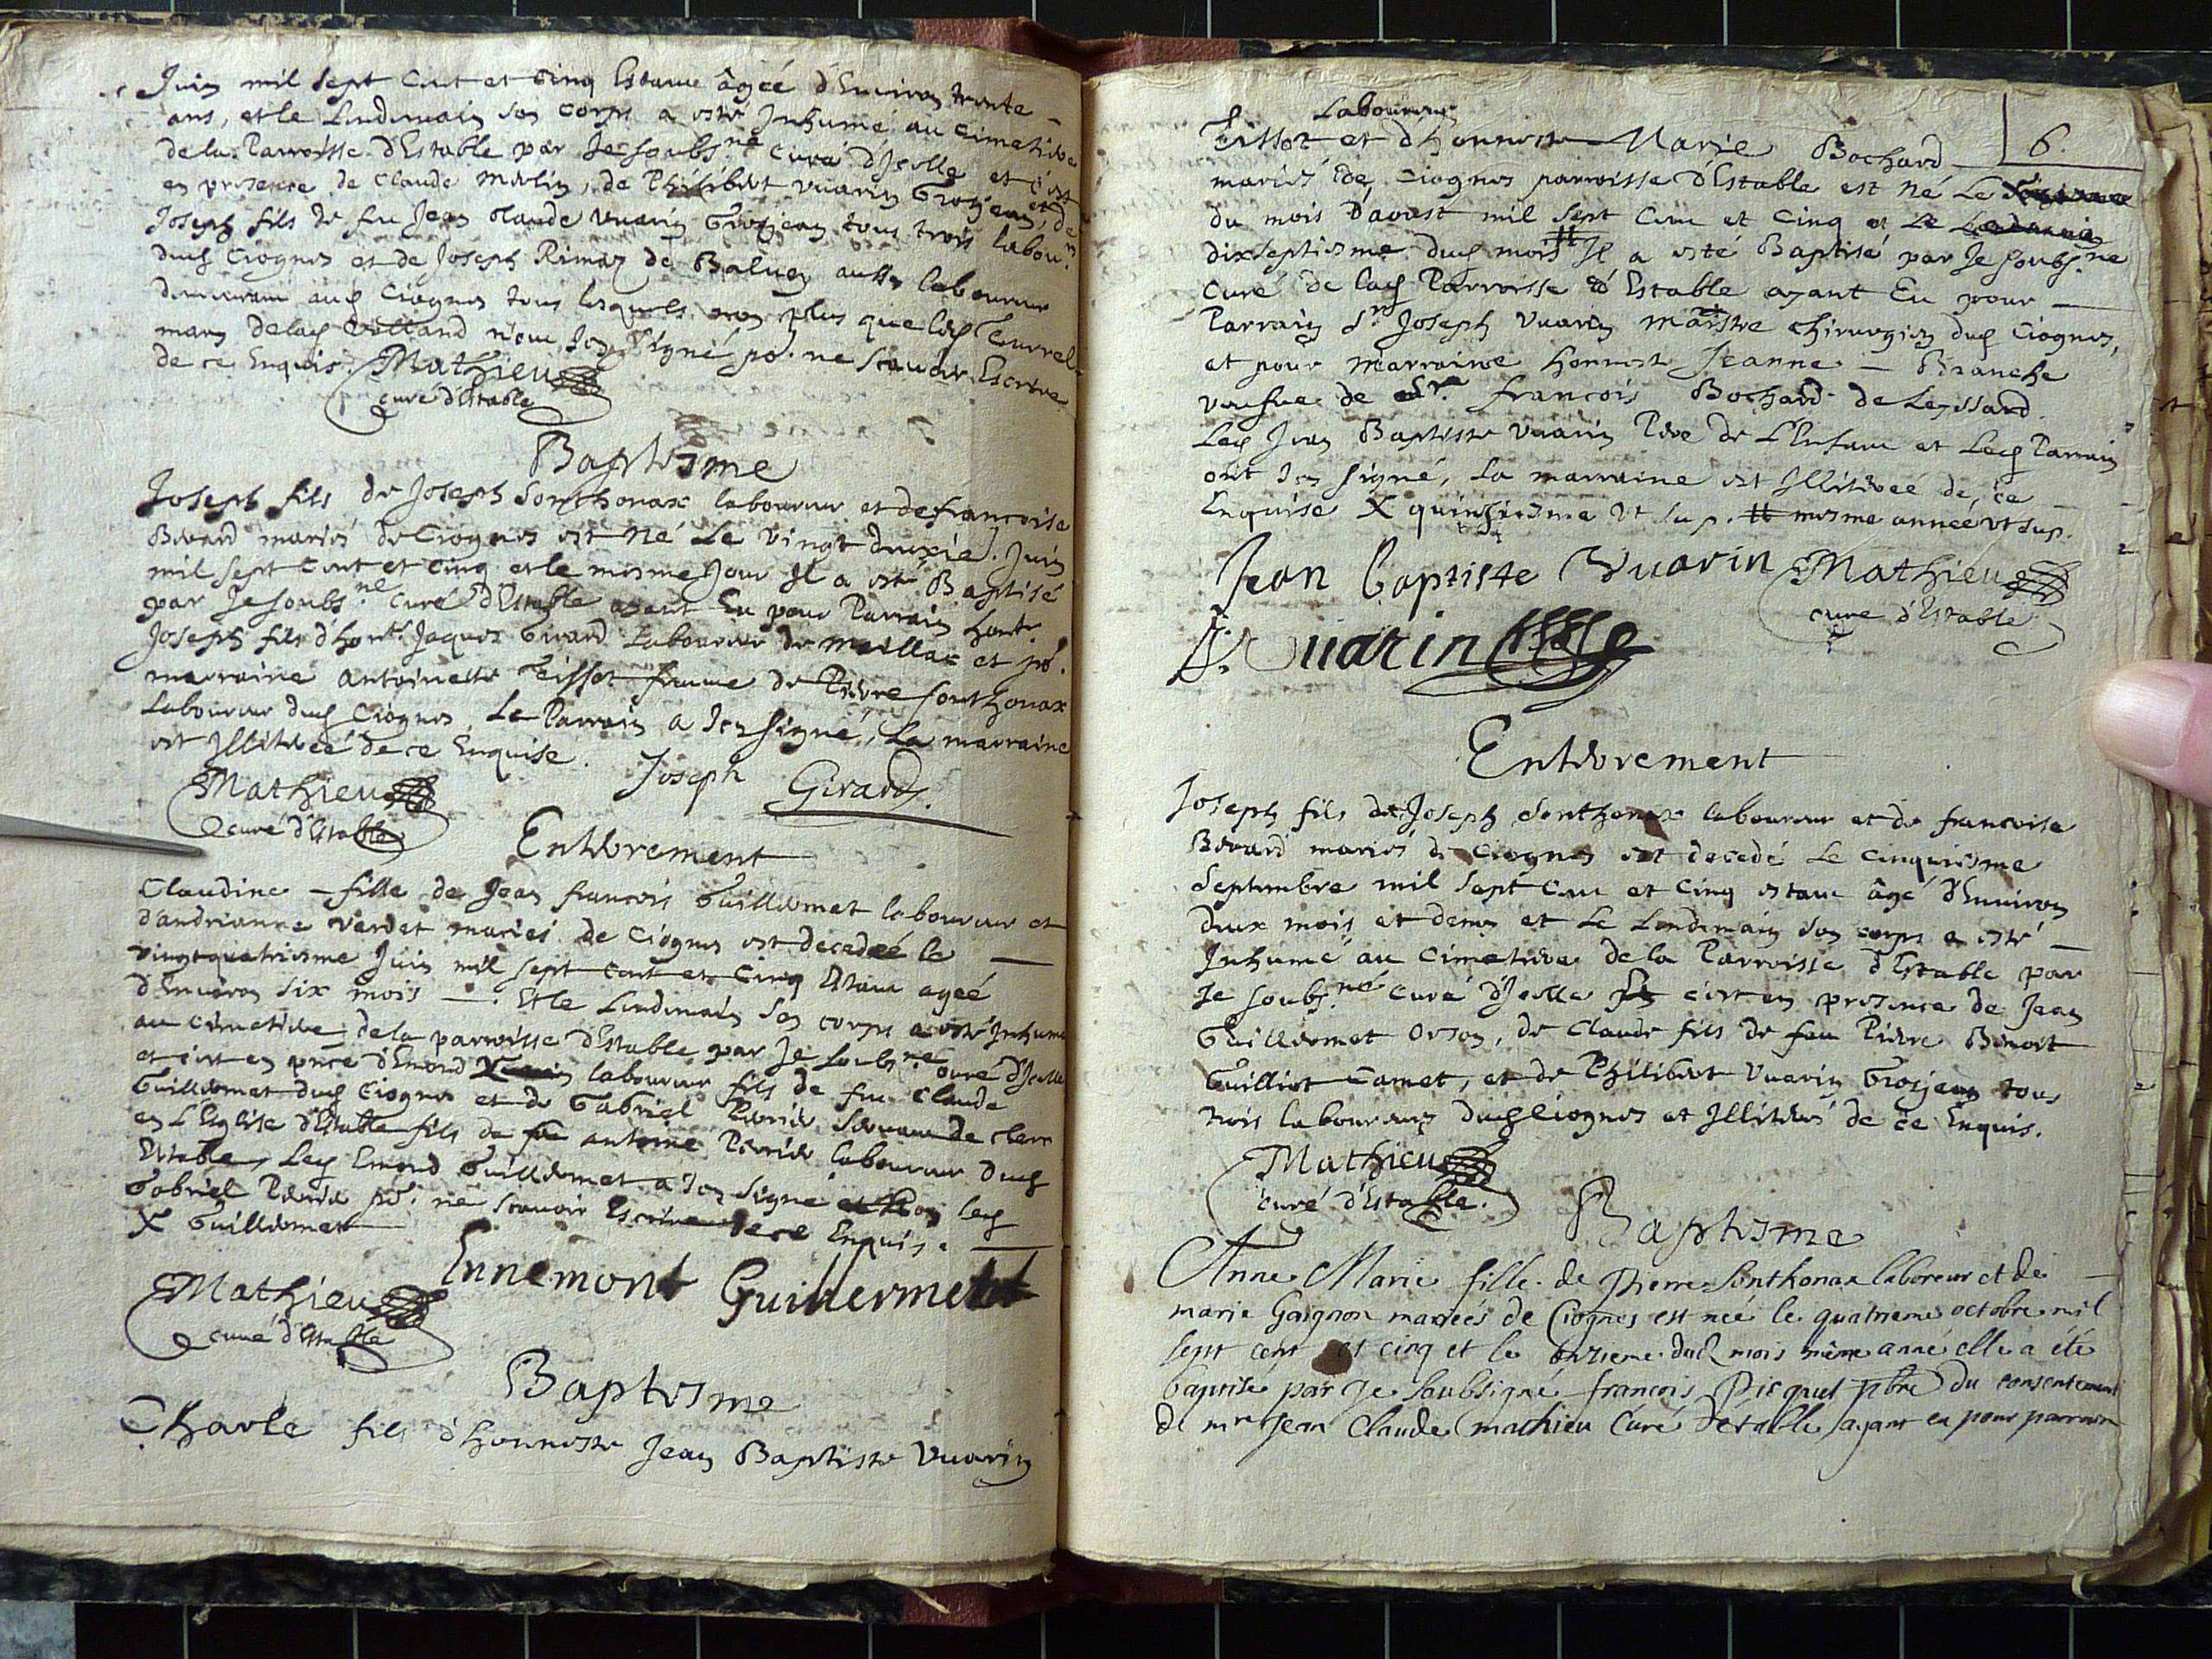 Juin mil sept cent et cinq Estant âgéé d'Environ trente
ans, et le Lendemain son corps a esté Inhumé au cimetiere
de la Parroisse d'Estable par Je soubs.né curé d'Jcelle et c'est
en presence de Claude Merlin, de Philibert Vuarin Grosjean, et de
Joseph fils de feu Jean Claude Vuarin Grosjean tous trois labou.rs
dud Ciognes et de Joseph Rimaz de Baluen aussy laboureur
demeurant aud Ciognes tous lesquels non plus que led
mary de lad Volland n'ont Jcy signé po.r ne scavoir Escrire
de ce Enquis. Mathieu
curé d'Estable
Baptesme
Joseph fils de Joseph Sonthonax laboureur et de francoise
Bevard mariés de Ciognes est né Le vingt deuxie. Juin
mil sept cent et cinq et le mesme Jour Il a esté Baptisé
par Je soubs.né curé d'Estable ayant Eu pour Parrain hont.
Joseph fils d'hont. Jaques Girard Laboureur de Meillac et po.r
marraine Antoinette Tissot femme de Pierre Sonthonax
Laboureur dud Ciognes, Le Parrain a Jcy signé, La marraine
est Illiteréé de ce Enquise. Joseph Girard.
Mathieu
curé d'Estable
Enterement
Claudine fille de Jean francois Guillermet laboureur et
d'andrianne Verdet mariés de Ciognes est decedéé le
vingtquatriesme Juin mil sept cent et cinq Estant agéé
d'Environ six mois. Et le Lendemain son corps a esté Inhumé
au cimetiere de la parroisse d'Estable par Je soubs.né curé d'Jcelle
et c'est en pnce d'Emond X laboureur fils de feu Claude
Guillermet dud Ciognes et de Gabriel Perrier servant de clerc
en l'Eglise d'Estable fils de feu antoine Perrier laboureur dud
Estable, Led Emond Guillermet a Jcy signé et non led
Gabriel Perrier po.r ne scavoir Escrire de ce Enquis.
X Guillermet
Ennemont Guillermet
Mathieu
curé d'Estable
Baptesme
Charle fils d'honneste Jean Baptiste Vuarin
6.
Laboureur
Tissot et d'honneste Marie Bochard
mariés de Ciognes parroisse d'Estable est né Le X
du mois d'aoust mil sept cent et cinq et Le Lendemain
dixseptiesme dud mois # Il a esté Baptisé par Je soubs.né
curé de lad Parroisse d'Estable ayant Eu pour
Parrain Sr. Joseph Vuarin maistre chirurgien dud Ciognes,
et pour marraine honneste Jeanne Branche
veusve de Sr. francois Bochard de Leyssard.
Led Jean Baptiste Vuarin Pere de L'Enfant et Led Parrain
ont Jcy signé, La marraine est Illiteréé de ce
Enquise X quinziesme vt sup. # mesme année vt sup.
Jean baptiste Vuarin Mathieu
curé d'Estable
J. Vuarin
Enterement
Joseph fils de Joseph Sonthonax laboureur et de francoise
Bevard mariés de Ciognes est decedé Le cinquiesme
Septembre mil sept cent et cinq estant âgé d'Environ
deux mois et demy et Le Lendemain son corps a esté
Inhumé au cimetiere de la Parroisse d'Estable par
Je soubs.né curé d'Jcelle Et c'est en presence de Jean
Guillermet Orson, de Claude fils de feu Pierre Benoit
Guilliot Camet, et de Philibert Vuarin Grosjean tous
trois laboureurs dud Ciognes et Illiterés de ce Enquis.
Mathieu
curé d'Estable.
Baptesme
Anne Marie fille de Pierre Sonthonax laboreur et de
marie Gaignon mariéés de Ciognes est néé le quatrieme octobre mil
sept cent et cinq et le onzieme dud mois même année elle a été
baptisé par je soubsigné françois Picquet pbre du consentement
de mr Jean Claude mathieu Curé d'étable, ayant eu pour parrain